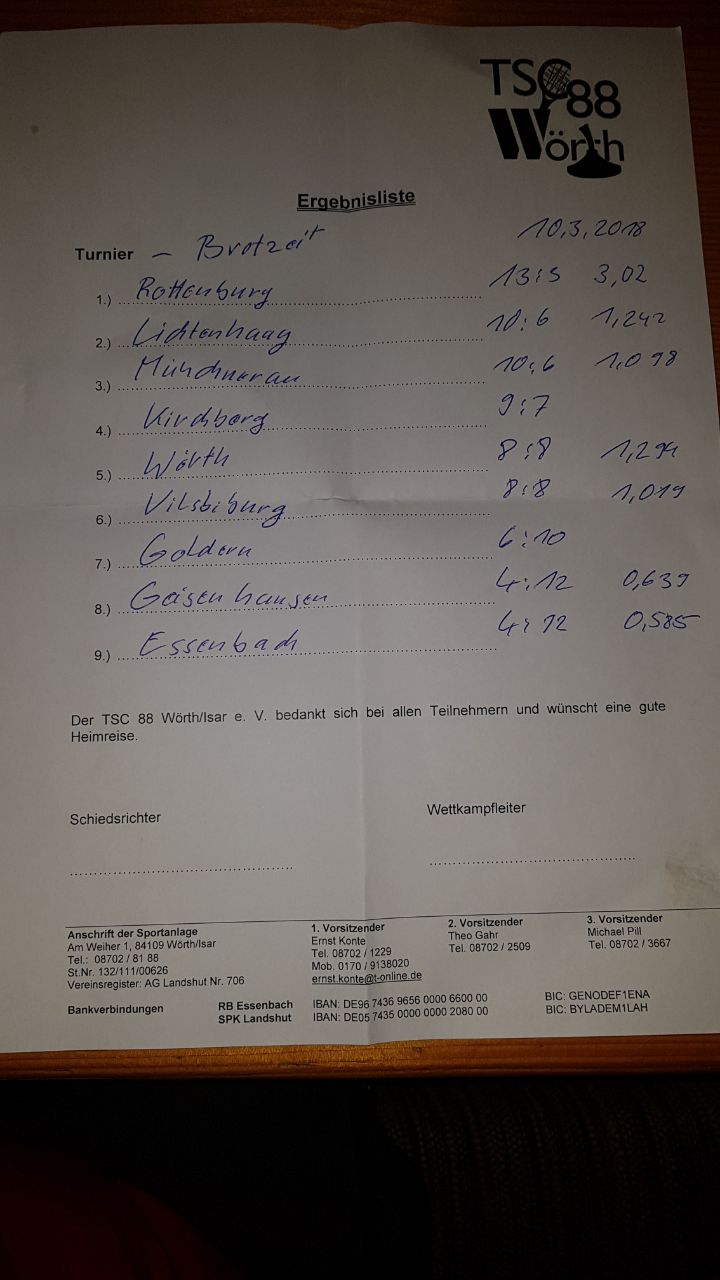 TSC 88
Wörth
Ergebnisliste
Turnier - Brotzeit 10.3.2018
1.) Rottenburg 13:3 3,02
2.) Lichtenhaag 10:6 1,242
3.) Münchnerau 10:6 1,098
4.) Kirchberg 9:7
5.) Wörth 8:8 1,294
6.) Vilsbiburg 8:8 1,019
7.) Goldern 6:10
8.) Geisenhausen 4:12 0,639
9.) Essenbach 4:12 0,585
Der TSC 88 Wörth/Isar e. V. bedankt sich bei allen Teilnehmern und wünscht eine gute
Heimreise.
Schiedsrichter Wettkampfleiter
Anschrift der Sportanlage
Am Weiher 1, 84109 Wörth/Isar
Tel.: 08702 / 81 88
St.Nr. 132/111/00626
Vereinsregister: AG Landshut Nr. 706
1. Vorsitzender
Ernst Konte
Tel. 08702 / 1229
Mob. 0170 / 9138020
ernst.konte@t-online.de
2. Vorsitzender
Theo Gahr
Tel. 08702 / 2509
3. Vorsitzender
Michael Pill
Tel. 08702 / 3667
Bankverbindungen RB Essenbach IBAN: DE96 7436 9656 0000 6600 00 BIC: GENODEF1ENA
SPK Landshut IBAN: DE05 7435 0000 0000 2080 00 BIC: BYLADEM1LAH